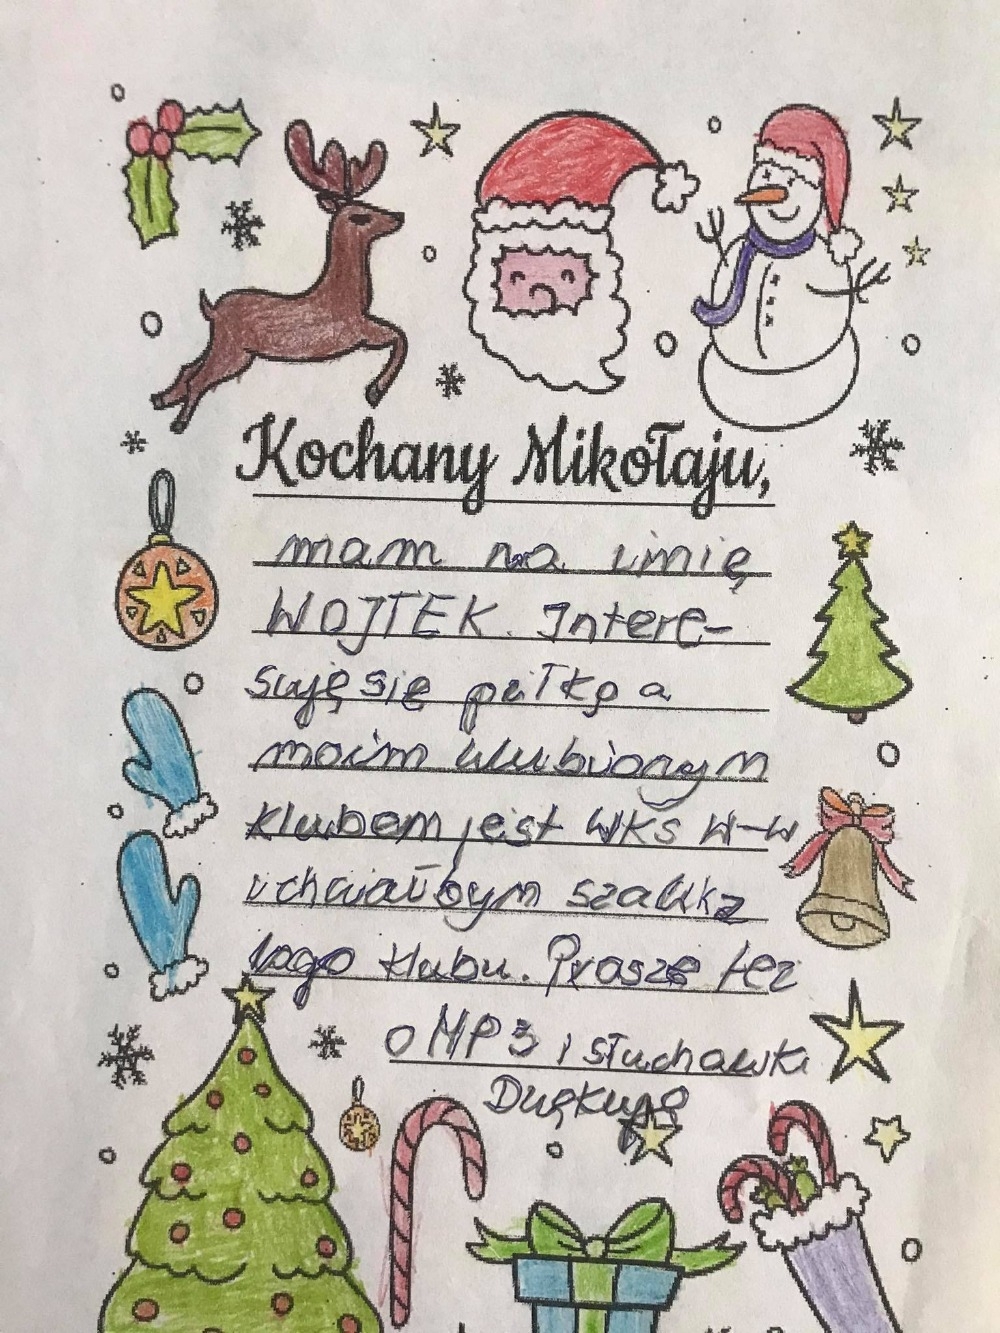 Kochany Mikołaju,
mam na imię
WOJTEK. Intere-
suję się piłką a
moim ulubionym
klubem jest WKS W-w
i chciałbym szalik z
logo klubu. Proszę też
o MP3 i słuchawki
Dziękuję